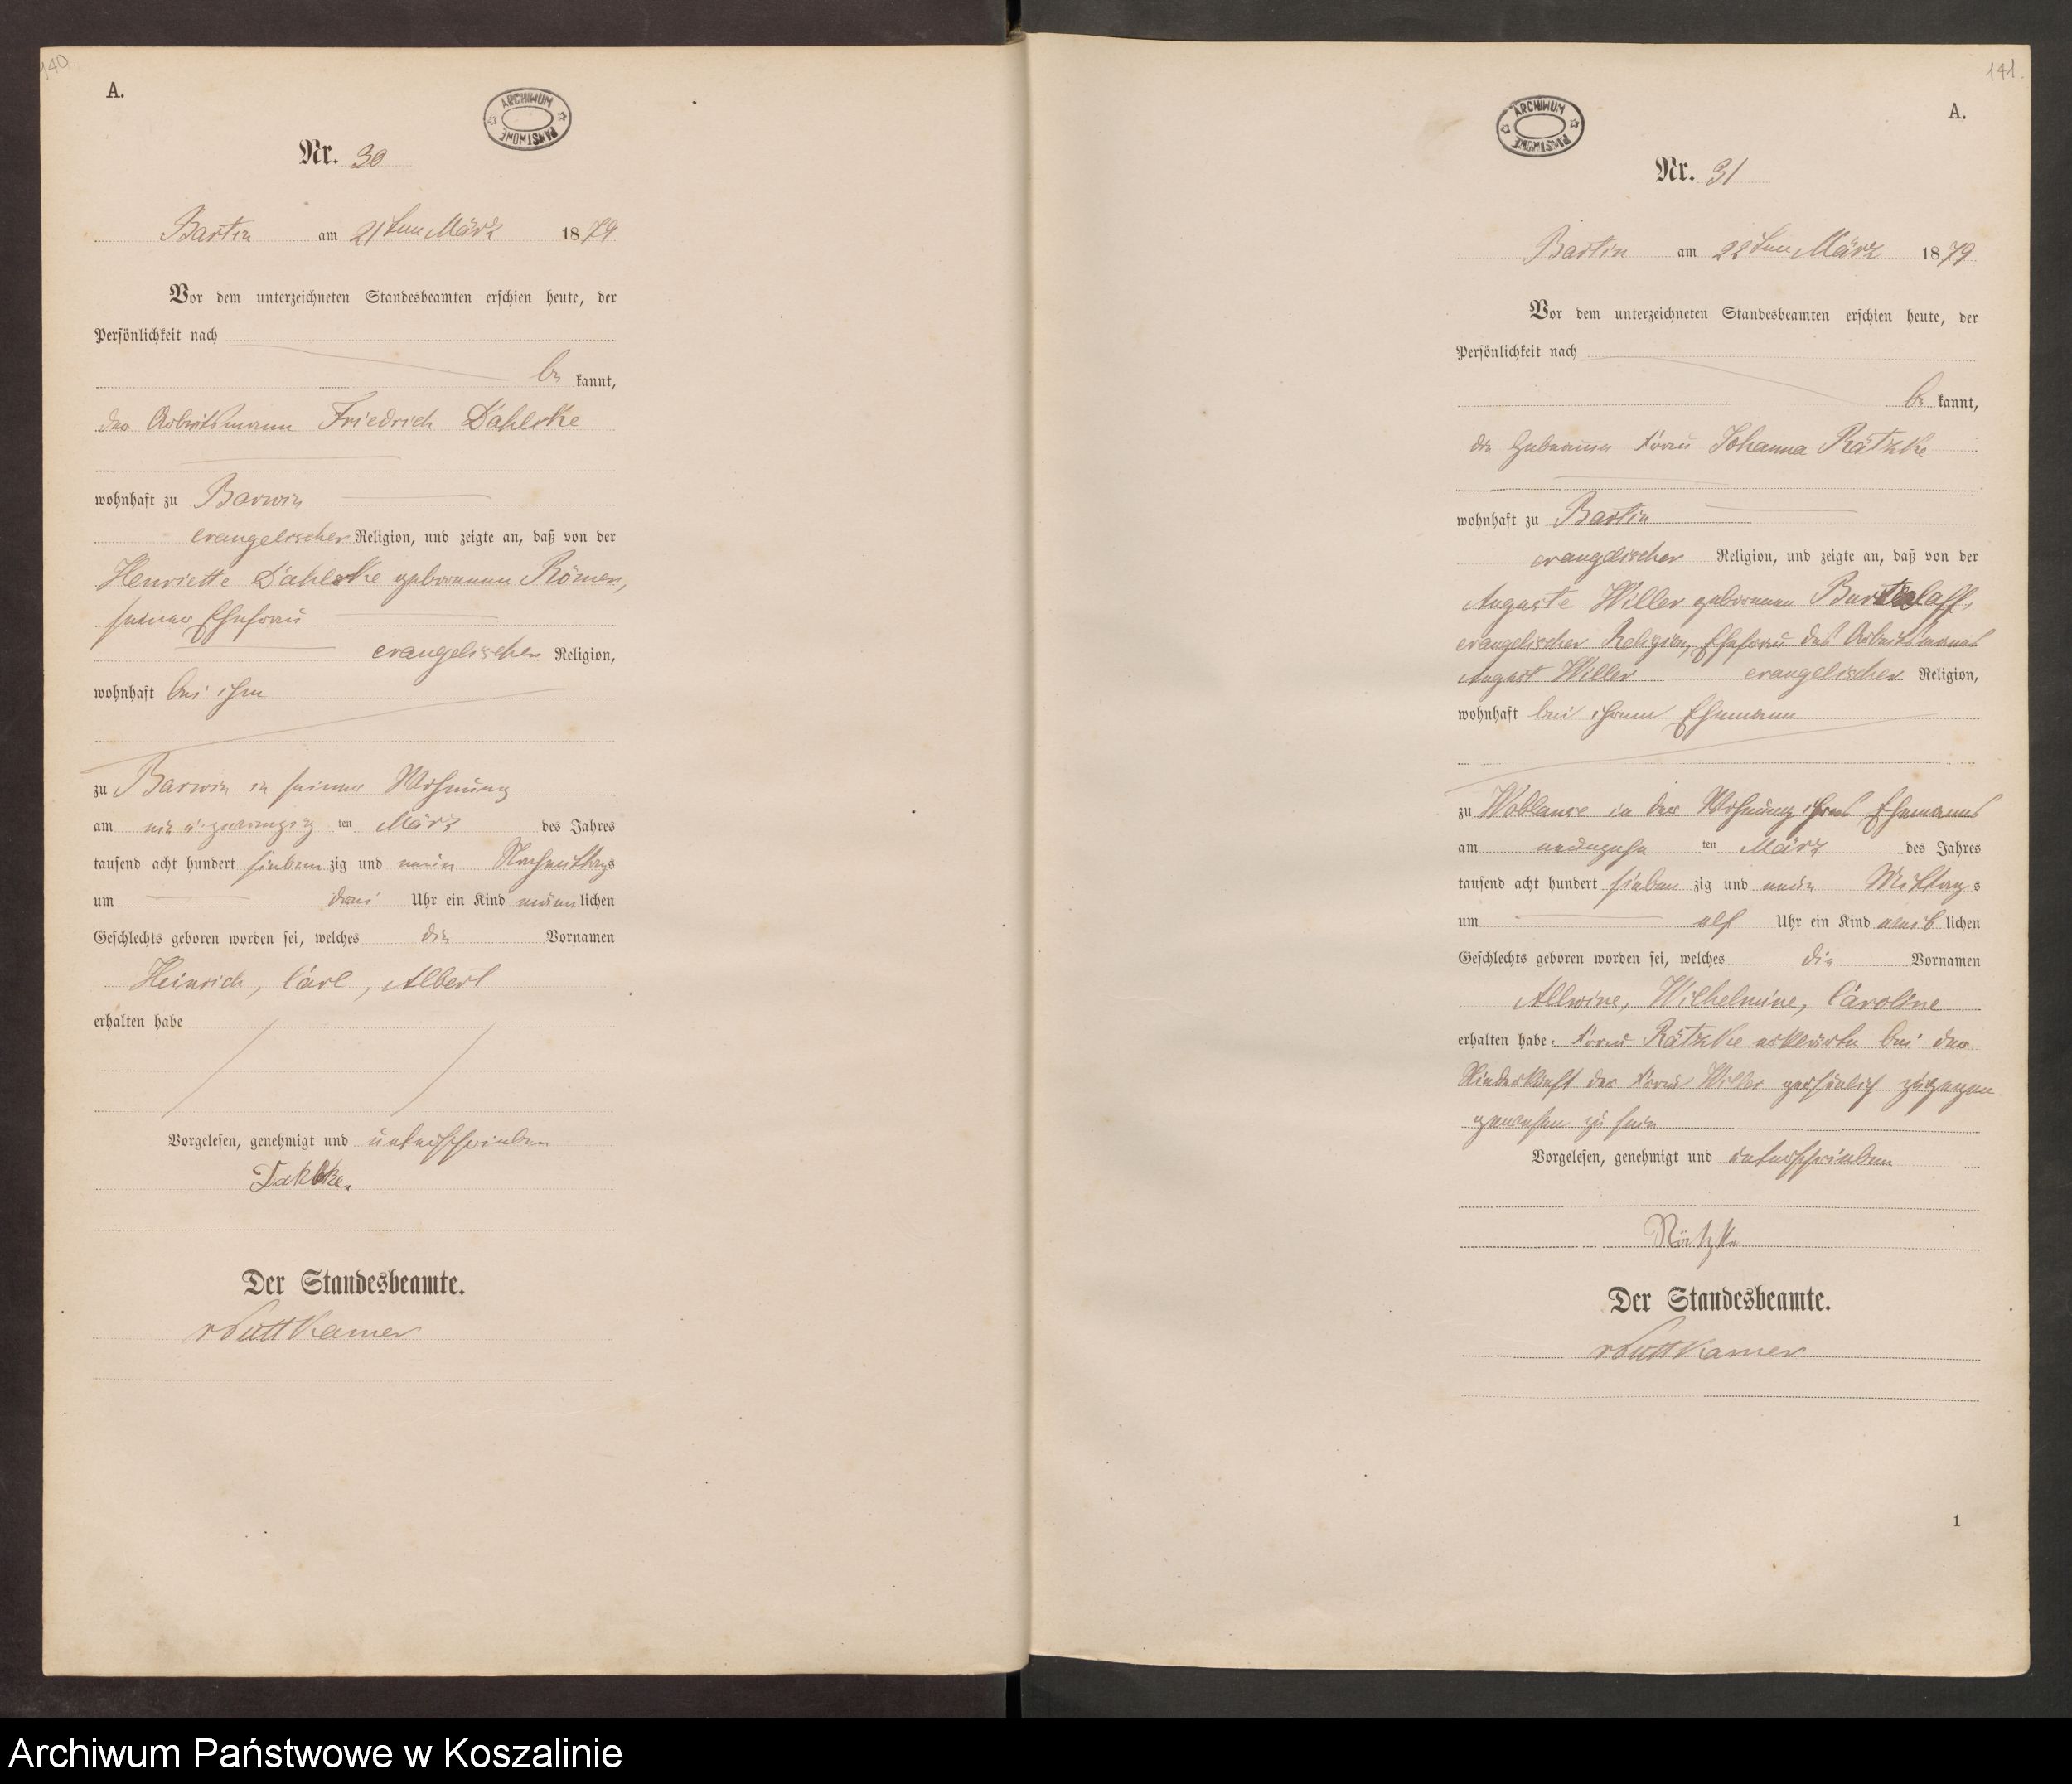 140.
A.
ARCHIWUM PAŃSTWOWE
Nr. 30
Bartin am 21ten März 1879
Vor dem unterzeichneten Standesbeamten erschien heute, der
Persönlichkeit nach
be kannt,
der Arbeitsmann Friedrich Dahlske
wohnhaft zu Barwin
evangelischer Religion, und zeigte an, daß von der
Henriette Dahlske geborenen Römer,
seiner Ehefrau
evangelischer Religion,
wohnhaft bei ihm
zu Barwin in seiner Wohnung
am ein u. zwanzig ten März des Jahres
tausend acht hundert sieben zig und neun Nachmittags
um drei Uhr ein Kind männlichen
Geschlechts geboren worden sei, welches die Vornamen
Heinrich, Carl, Albert
erhalten habe
Vorgelesen, genehmigt und unterschrieben
Der Standesbeamte.
vPuttkamer
141.
A.
ARCHIWUM PAŃSTWOWE
Nr. 31
Bartin am 22ten März 1879
Vor dem unterzeichneten Standesbeamten erschien heute, der
Persönlichkeit nach
be kannt,
die Hebamme Frau Johanna Rätzke
wohnhaft zu Bartin
evangelischer Religion, und zeigte an, daß von der
Auguste Willer geborenen
evangelischer Religion, Ehefrau des Arbeitsmanns
August Willer evangelischer Religion,
wohnhaft bei ihrem Ehemann
zu Woblanse in der Wohnung ihres Ehemanns
am neunzehn ten März des Jahres
tausend acht hundert sieben zig und neun Mittags
um elf Uhr ein Kind weib lichen
Geschlechts geboren worden sei, welches die Vornamen
Allwine, Wilhelmine, Caroline
erhalten habe. Frau Rätzke erklärte bei der
Niederkunft der Frau Willer persönlich zugegen
gewesen zu sein
Vorgelesen, genehmigt und unterschrieben
Rätzke
Der Standesbeamte.
vPuttkamer
1
Archiwum Państwowe w Koszalinie